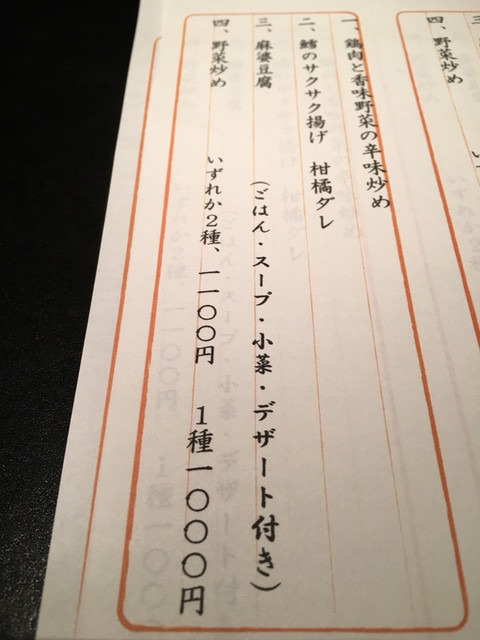 四、野菜炒め
一、鶏肉と香味野菜の辛味炒め
二、鱈のサクサク揚げ　柑橘ダレ
三、麻婆豆腐
四、野菜炒め
(ごはん・スープ・小菜・デザート付き)
いずれか2種、一一〇〇円　1種一〇〇〇円